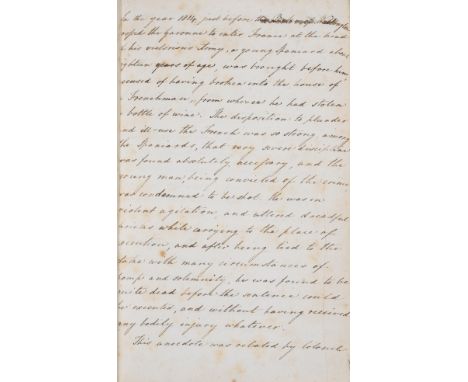 In the year 1814, just before the Duke of Wellington
crossed the Garonne to enter France at the head
of his victorious Army, a young Spaniard about
eighteen years of age was brought before him
accused of having broken into the house of
a Frenchman, from whence he had stolen
a bottle of wine. The disposition to plunder
and ill-use the French was so strong among
the Spaniards, that very severe discipline
was found absolutely necessary, and the
young man, being convicted of the crime
was condemned to be shot. He was in
violent agitation, and uttered dreadful
screams while carrying to the place of
execution, and after being tied to the
stake with many circumstances of
pomp and solemnity, he was found to be
quite dead before the sentence could
be executed, and without having received
any bodily injury whatever.
This anecdote was related by Colonel